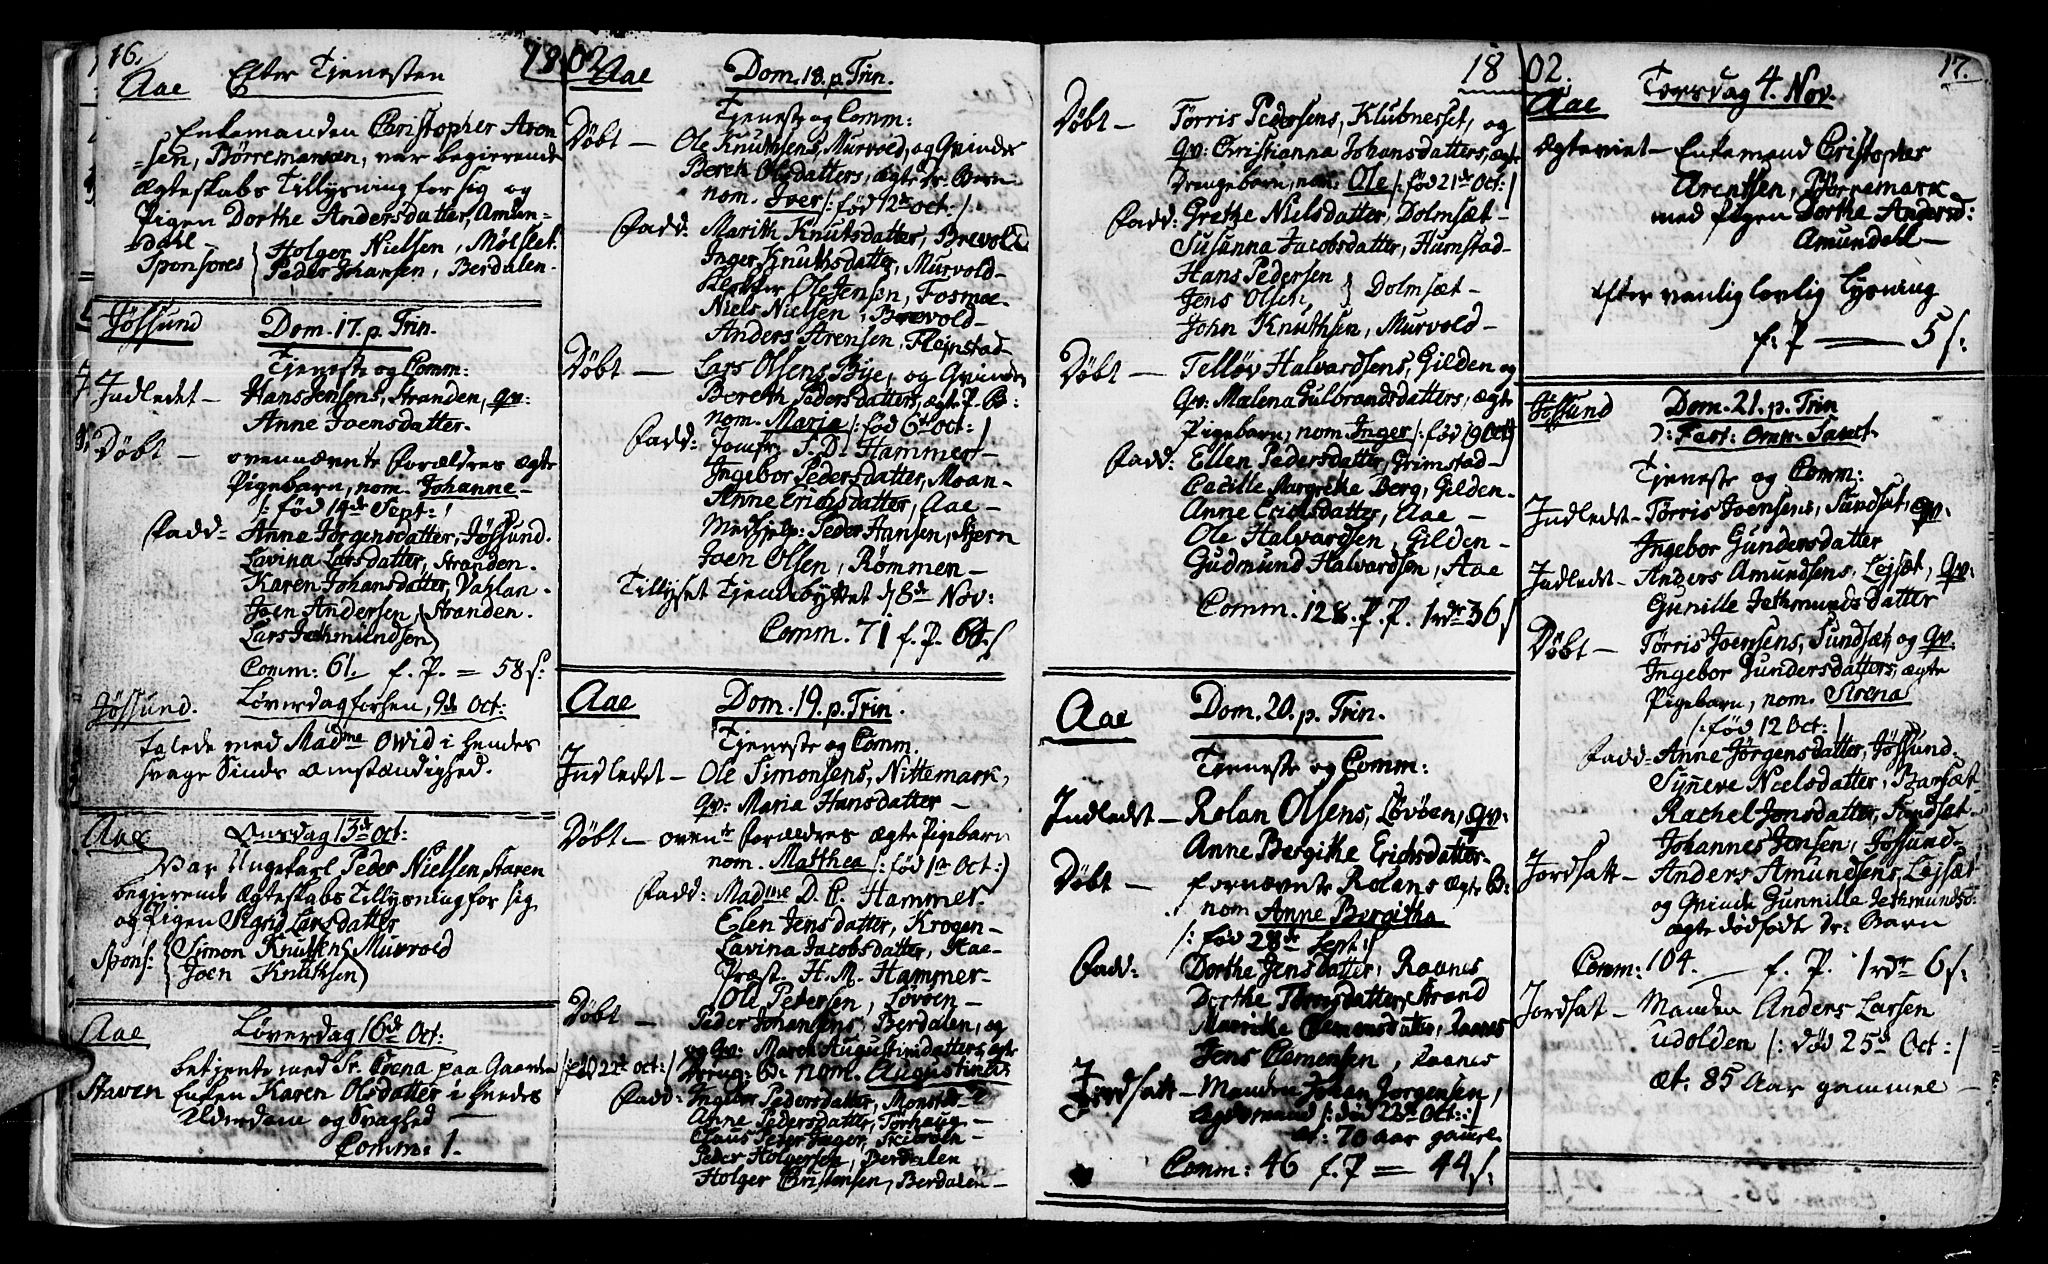 16.
1802.
Aae Efter Tjenesten
Enkemanden Christopher Aron
=sen, Børremarken, var begierende
Ægteskabs Tillysning for sig og
Pigen Dorthe Andersdatter, Amun=
dahl
Sponsores Holger Nielsen, Mølslet.
Peder Johansen, Berdalen.
Jøssund Dom. 17. p. Trin.
Tjeneste og Comm:
Indledet - Hans Jensens, Stranden, qv:
Anne Joensdatter.
Døbt - ovennævnte Forældres ægte
Pigebarn, nom. Johanne -
/: fød 14de Sept: /
Fadd= Anne Jørgensdatter, Jøssund.
Lavina Larsdatter, Stranden.
Karen Johansdatter,
Joen Andersen, Stranden.
Lars Jethmundsen
Comm: 61. f. P. = 58 s.
Jøssund. Løverdag forhen, 9de Oct:
talede med Madme Owid i hendes
svage Sinds Omstændighed.
Aae Onsdag 13de Oct:
Var Ungekarl Peder Nielsen, Staren
begierende Ægteskabs Tillysning for sig
og Pigen Sigrid Larsdatter
Spons: Simon Knutsen, Murvold
Joen Knutsen
Aae Løverdag 16de Oct:
betjente med Sr. Coena paa Gaarden
Staren Enken Karen Olsdatter i hendes
Alderdom og Svaghed -
Comm: 1.
Aae Dom. 18. p. Trin.
Tjeneste og Comm:
Døbt - Ole Knuthsens, Murvold, og Qvindes
Bereth Olsdatters, ægte Dr: Barn
nom. Iver /: fød 12te Oct: /
Fadd: Marith Knutsdatter, Brevold
Inger Knuthsdatter, Murvold -
Klokker Ole Jensen, Fosmoe.
Niels Nielsen, Brevold -
Anders Arensen, Flejnstad
Døbt - Lars Olsens, Bye, og Qvindes
Bereth Pedersdatters, ægte P. B:
nom. Maria /: fød 6te Oct: /
Fadd: Jomfr. S. D. Hammer -
Ingebor Pedersdatter, Moan -
Anne Erichsdatter, Aae -
Medhjelp: Peder Hansen, Stjern
Joen Olsen, Rømmen -
Tillyset Tjenestbyttet d 8de Nov:
Comm. 71 f. P. 60 s
Aae Dom. 19. p. Trin.
Tjeneste og Comm.
Indledet - Ole Simonsens, Nittemark,
qv: Maria Hansdatter -
Døbt - ovente Forældres ægte Pigebarn
nom. Matthea /: fød 1te Oct: /
Fadd: Madme D. C. Hammer.
Elen Jensdatter, Krogen -
Lavina Jacobsdatter, Aae -
Præst. H. M. Hammer -
Ole Pedersen, Løvøen -
Døbt - Peder Johansens, Berdalen, og
og qv: Maren Augustinidatters, ægte
/: fød 22de Oct: / Dreng: B: nom. Augustinus
Fadd: Ingebor Pedersdatter,
Anne Pedersdatter, Torhaug -
Claus Peter
Peder Holgersen, Berdalen
Holger Christensen, Berdalen -
1802. 17.
Døbt - Tørris Pedersens, Klubnesset, og
qv: Christianna Johansdatters, ægte
Drengebarn, nom: Ole /: fød 21de Oct: /
Fadd: Grethe Nielsdatter, Dolmsæt -
Susanna Jacobsdatter, Humstad -
Hans Pedersen
Jens Olsen, Dolmsæt -
John Knuthsen, Murvold -
Døbt - Telløv Halvardsens, Gilden og
qv: Malena Gulbrandsdatters, ægte
Pigebarn, nom. Inger /: fød 19 Oct: /
Fadd: Ellen Pedersdatter, Grimstad -
Cecille Margrethe Berg, Gilden -
Anne Erichsdatter, Aae -
Ole Halvardsen, Gilden -
Gudmund Halvardsen, Aae
Comm. 128. f. P. 1 rdr 36 s
Aae Dom. 20. p. Trin.
Tjeneste og Comm:
Indledet - Rolan Olsens, Løvøen, qv:
Anne Bergithe Erichsdatter -
Døbt - fornævnte Rolans ægte B:
nom Anne Bergitha
/: fød 28de Sept: /
Fadd: Dorthe Jensdatter, Raanes
Dorthe Tørrisdatter, Strand
Marithe Clemensdatter, Raanes
Jens Clemensen, Raanes
Jordsatt - Manden Johan Jørgensen,
/: død 22de Oct: /
æt: 70 Aar gamel
Comm: 46 f. P = 44 s:
Aae Torsdag 4. Nov.
Ægteviet - Enkemand Christopher
Arentsen, Børremark
med Pigen Dorthe Andersd:
Amundahl -
Efter vanlig lovlig Lysning
f. P - 5 s:
Jøssund Dom. 21. p. Trin
: Fest: Omn: Sanct.
Tjeneste og Comm:
Indledet - Tørris Joensens, Sundsæt, qv.
Ingebor Gundersdatter
Indledet - Anders Amundsens, Lejsæt, qv:
Gunille Jethmundsdatter
Døbt - Tørris Joensens, Sundsæt, og qv:
Ingebor Gundersdatters, ægte
Pigebarn, nom. Sirena
/: fød 12 Oct: /
Fadd= Anne Jørgensdatter, Jøssund.
Synneve Nielsdatter, Barsæt
Rachel Jonsdatter, Sundsæt -
Johannes Jensen, Jøssund -
Jordsatt - Anders Amundsens, Lejsæt
og Qvinde Gunnille Jethmundsd:
ægte dødfødt Dr: Barn
Comm: 104. - f. P. 1 rdr 6 s:
Jordsat - Manden Anders Larsen
Udolden /: død 25de Oct: /
æt: 85 Aar gammel -